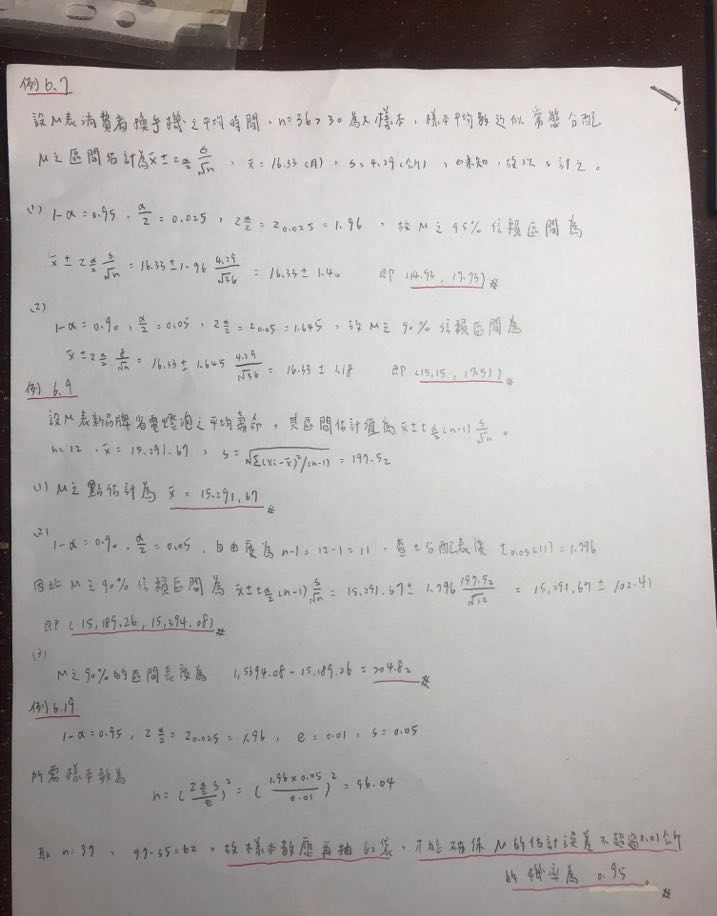 例6.7
設M表消費者換手機之平均時間，n=36>30為大樣本，樣本平均數近似常態分配
M之區間估計為x̄±z α/2 s/√n，x̄=16.33(月)，s=4.29(公斤)，σ未知，故以s計之。
(1) 1-α=0.95，α/2=0.025，z α/2=z0.025=1.96，故M之95%信賴區間為
x̄±z α/2 s/√n=16.33±1.96 4.29/√36=16.33±1.40 即(14.93，17.73)※
(2) 1-α=0.90，α/2=0.05，z α/2=z0.05=1.645，故M之90%信賴區間為
x̄±z α/2 s/√n=16.33±1.645 4.29/√36=16.33±1.18 即(15.15，17.51)※
例6.9
設M表新品牌省電燈泡之平均壽命，其區間估計值為x̄±t α/2(n-1) s/√n。
n=12，x̄=15,291.67，s=√Σ(xi-x̄)²/(n-1)=197.52
(1) M之點估計為x̄=15,291.67※
(2) 1-α=0.90，α/2=0.05，自由度為n-1=12-1=11，查t分配表後t0.05(11)=1.796
因此M之90%信賴區間為x̄±t α/2(n-1) s/√n=15,291.67±1.796 197.52/√12=15,291.67±102.41
即(15,189.26，15,394.08)※
(3)
M之90%的區間長度為 1,5394.08-15,189.26=204.82※
例6.19
1-α=0.95，z α/2=z0.025=1.96，e=0.01，s=0.05
所需樣本數為 n=(z α/2 s/e)²=(1.96×0.05/0.01)²=96.04
取n=97，97-35=62，故樣本數應再抽62袋，才能確保M的估計誤差不超過0.01公斤
的機率為0.95。※